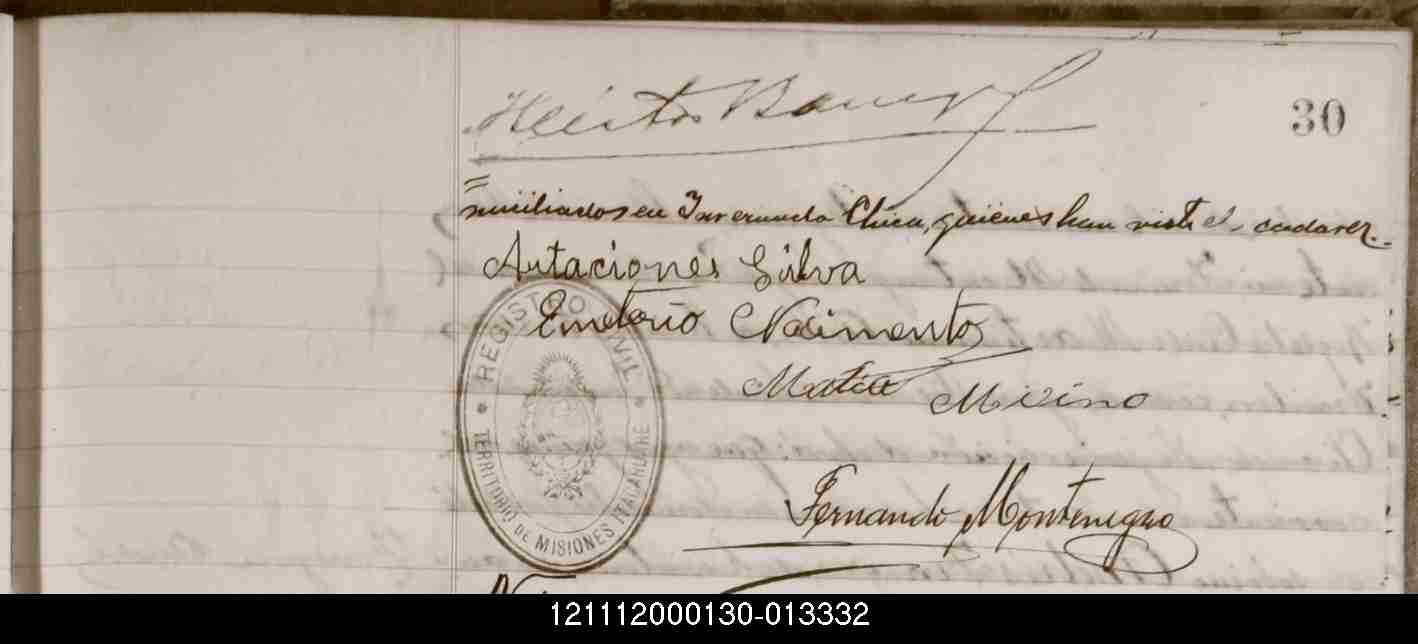 Héctor
30
=
miciliados en Invernada Chica, quienes han visto el cadaver.
Antaciones Silva
Emeterio Nacimento
Matia Merino
Fernando Montenegro
REGISTRO CIVIL
TERRITORIO DE MISIONES ITACARUARE
121112000130-013332